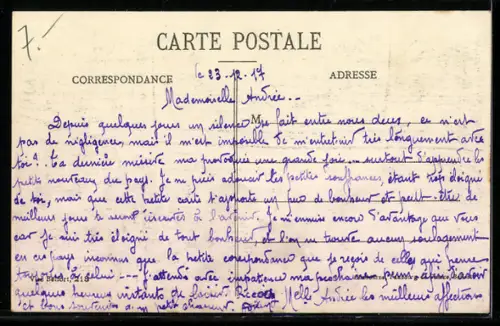 7.-
CARTE POSTALE
CORRESPONDANCE
ADRESSE
le 23.12.17
Mademoiselle Andrée._
Depuis quelques jours un silence se fait entre nous deux, ce n'est
pas de négligence, mais il m'est impossible de m'entretenir très longuement avec
toi? Ta dernière missive m'a provoqué une grande joie... surtout d'apprendre les
petits nouveaux du pays. Je ne puis adoucir tes petites souffrances, étant très éloigné
de toi, mais que cette carte t'apporte un peu de bonheur et peut-être de
meilleurs jours te seront réservés à l'avenir. Je m'ennuie encore d'avantage que vous
car je suis très éloigné de tout bonheur et l'on ne trouve aucun soulagement
en ces pays inconnus que la petite correspondance que je reçois de celles qui pense
toujours à celui --- J'attends avec impatience ma prochaine perm afin d'avoir
quelques heureux instants de loisir. Recois Melle Andrée les meilleurs affections
et bons souvenirs d'un petit chasseur.